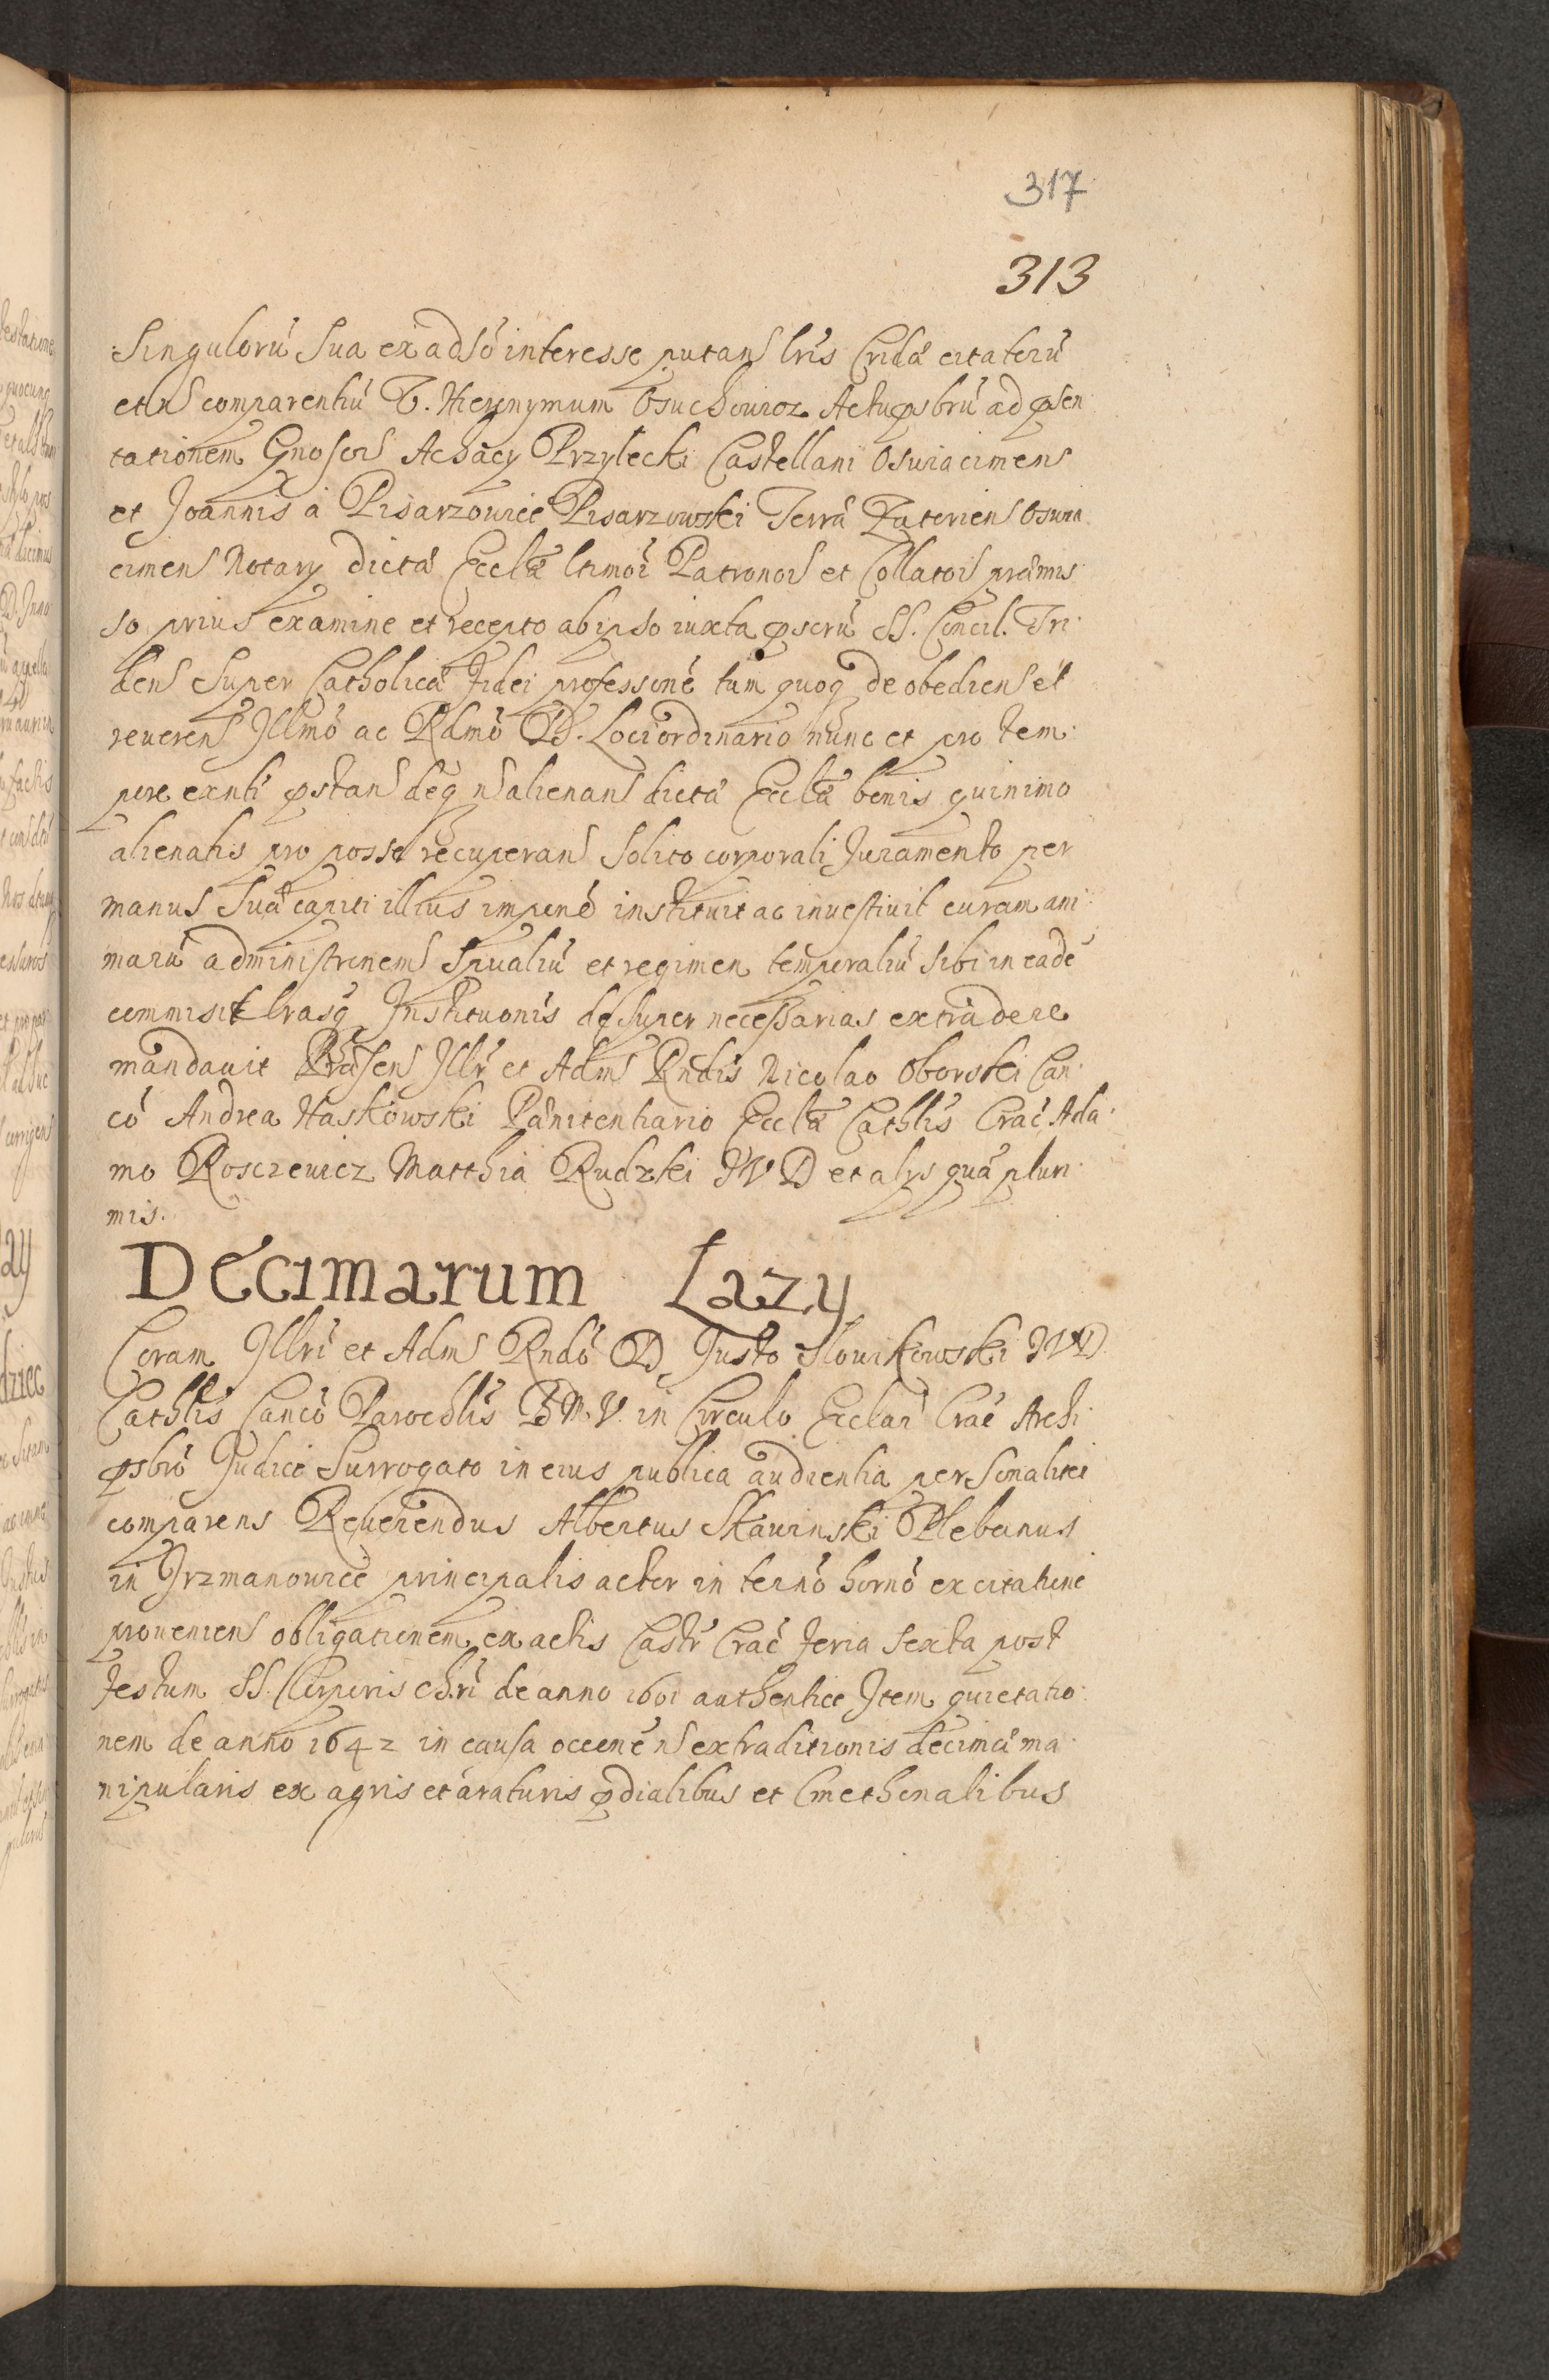 317
313
Singulorũ Sua ex adsõ interesse putanS lrĩs Cridã citatorũ
et nS comparentiũ V. Hieronymum Osuchowicz Actu psbrũ ad psen
tationem GnosorũS Achacy Przylecki Castellani OswiacimenS
et Joannis à Pisarzowicẽ Pisarzowski Terrã ZatorienS Oswia
cimenS Notary dictã Ecclã ltimõr Patronor̃ et Collator̃ prämis
so prius examine et recepto ab ipso iuxta pscrũ SS. Concil. Tri
denS Super Catholicã Fidei professionẽ tum quoq de obedienS et
reverenS Illmõ ac Rdmõ D. Loci ordinario nunc et pro tem
pore exnti pstanS deq nS alienanS dictã Ecclã bonis quinimo
alienatis pro posse recuperanS Solito corporali Juramento per
manus Suã capiti illius imponẽ instituit ac investivit curam ani
marũ administronemS Spualiũ et regimen temporaliũ sibi in eadẽ
commisit lrasq Institutionis de super necessarias extradere
mandavit PräsenS Illr̃ et AdmS Rndis Nicolao Oborski Can
cõ Andrea Haskowski Pänitentiario Ecclã Cathlis Crac̃ Ada
mo Rosciewicz Matthia Rudzki JVD et alys quã pluri
mis.
Decimarum Lazy
Coram Illri et AdmS Rndõ D Justo Slowikowski JVD
Cathlis Cancõ Parochlis B M. V. in Circulo Ecclar̃ Crac̃ Archi
psbrõ Judice Surrogato in eius publica audientia personaliter
comparens Reverendus Albertus Skawinski Plebanus
in Jrzmanowicẽ principalis actor in termõ hornõ ex citatione
provenienS obligationem ex actis Castr̃ Crac̃ feria sexta post
festum SS. Corporis Chri de anno 1601 authentice Item quietatio
nem de anno 1642 in causa occonẽ nS extraditionis decimã ma
nipularis ex agris et araturis pdialibus et Cmethonalibus